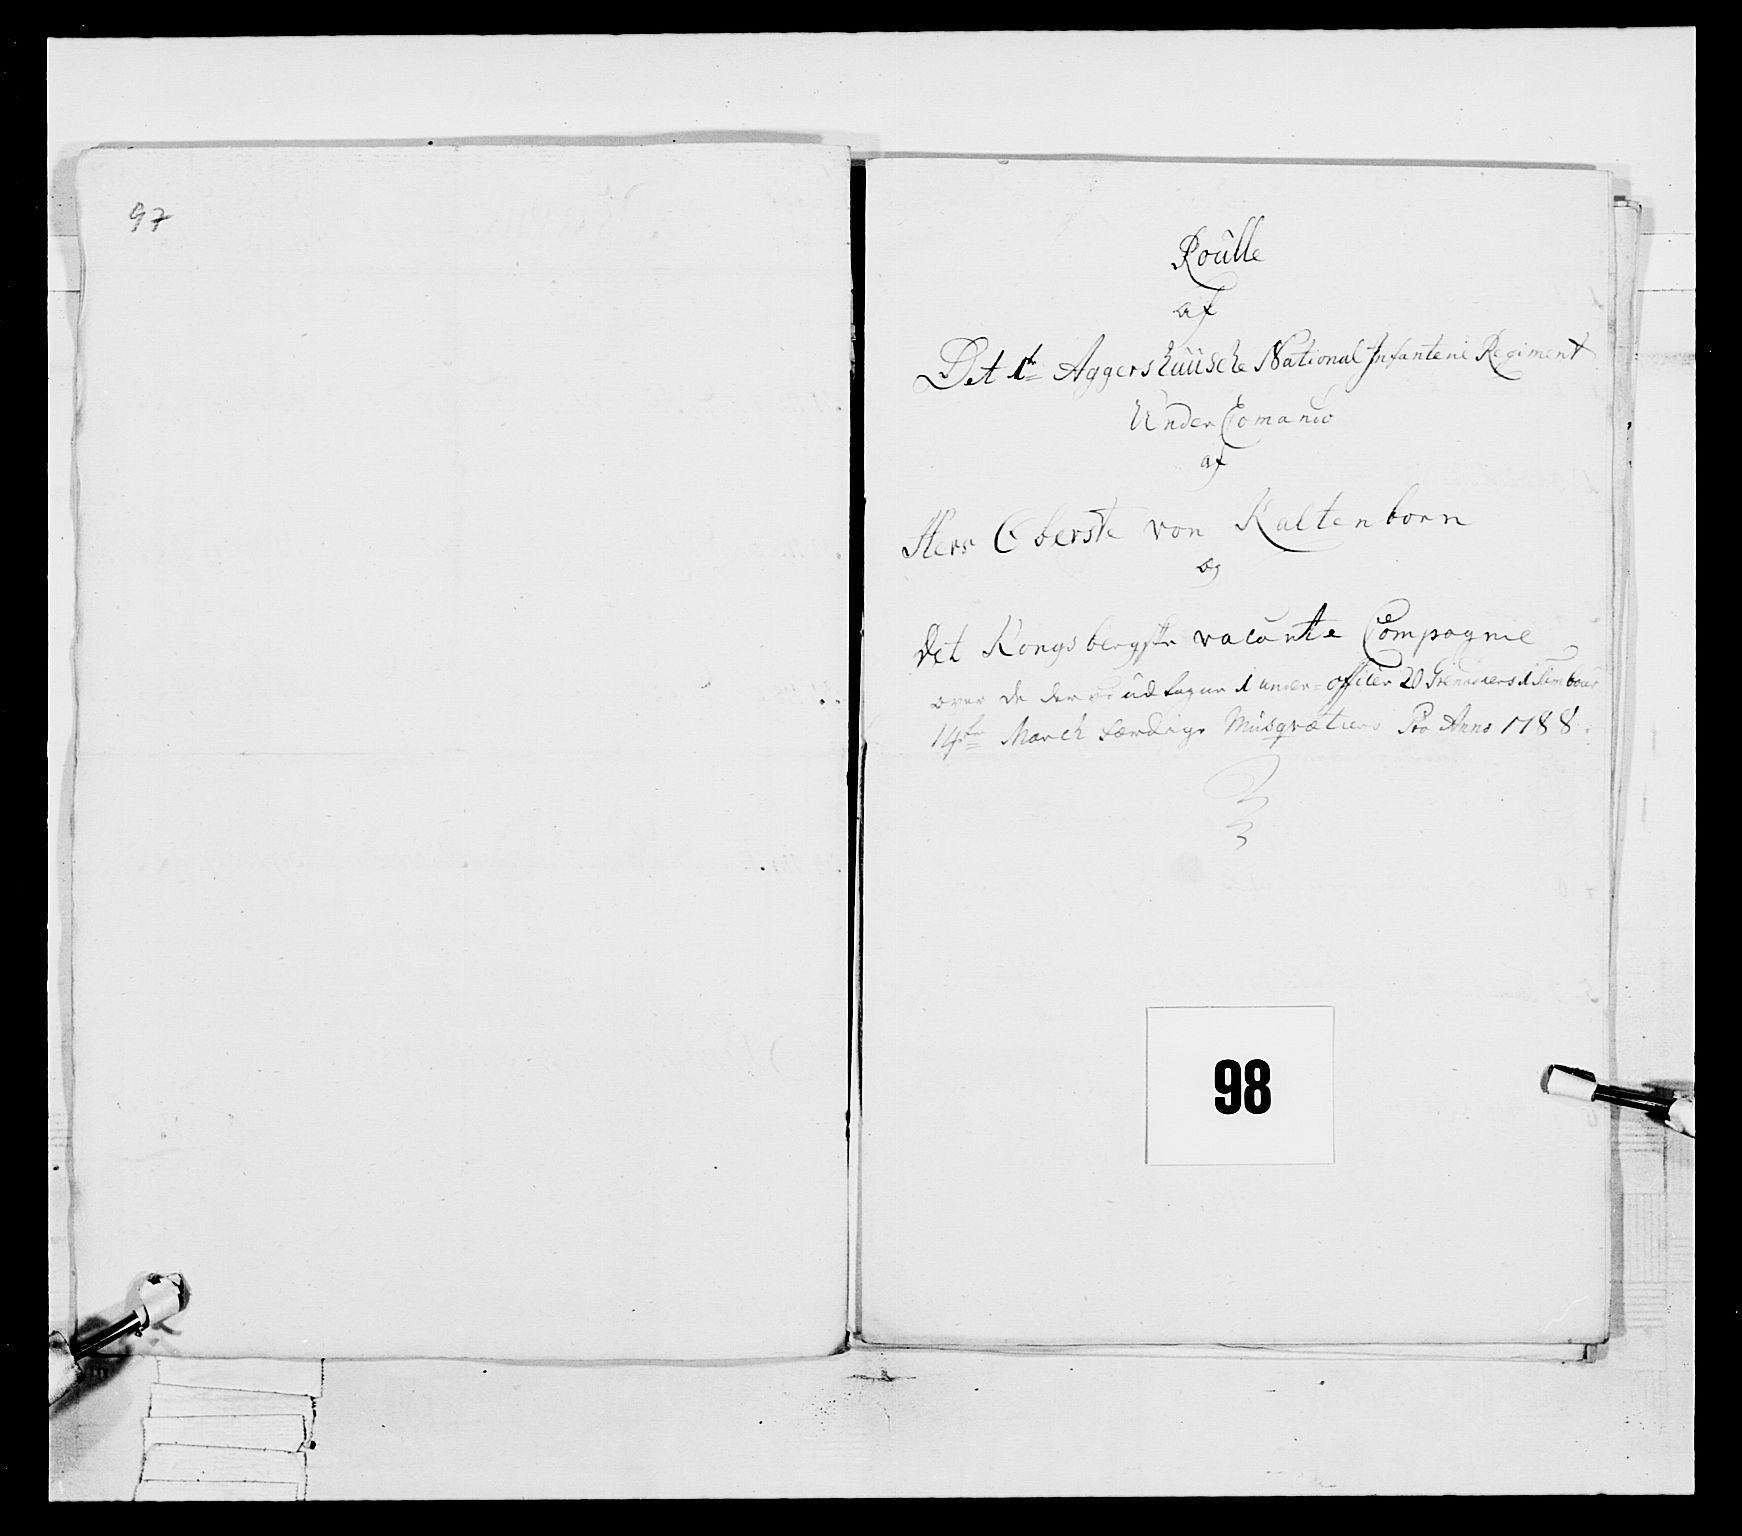 97
Roulle
af
Det 1te Aggershuusche National Infanterie Regiment
Under Comando
af
Herr Oberste von Kaltenborn
og
Det Kongsbergske vacante Compagnie
over de der ved udtagne 1 under=officier 20 Grenadiers 1 Tambour
14ten March færdige Musqvætiers Pro Anno 1788.
98